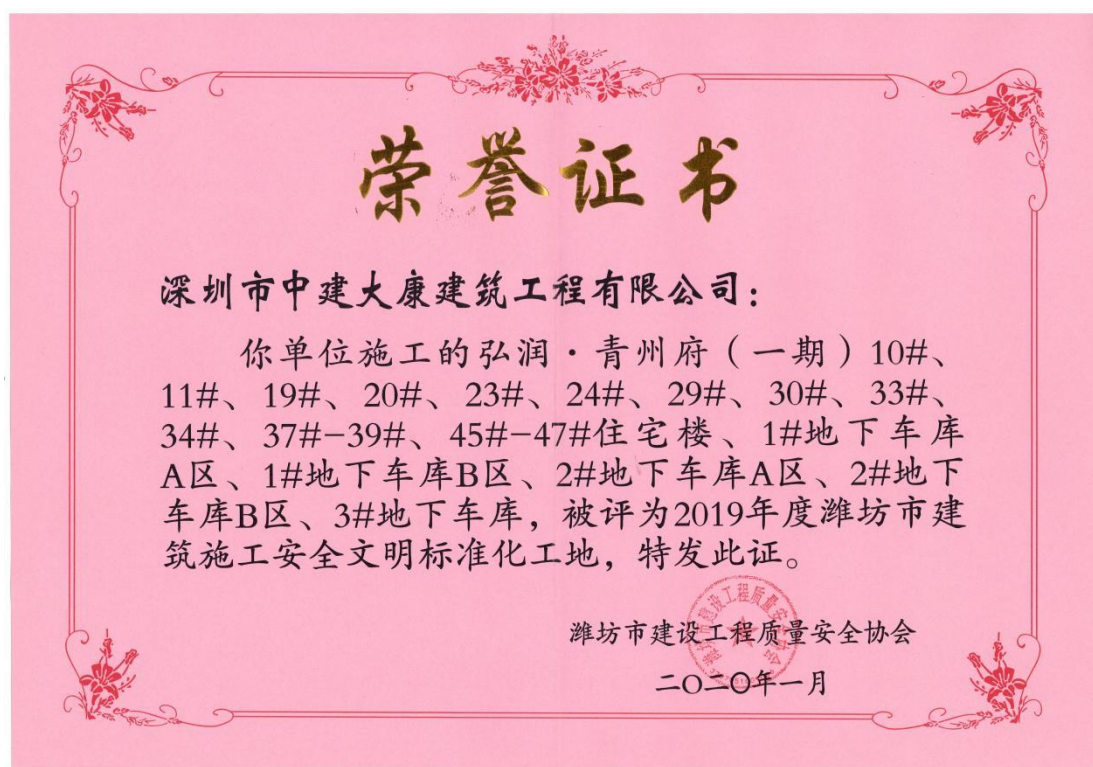 荣誉证书
深圳市中建大康建筑工程有限公司：
你单位施工的弘润·青州府（一期）10#、
11#、19#、20#、23#、24#、29#、30#、33#、
34#、37#-39#、45#-47#住宅楼、1#地下车库
A区、1#地下车库B区、2#地下车库A区、2#地下
车库B区、3#地下车库，被评为2019年度潍坊市建
筑施工安全文明标准化工地，特发此证。
潍坊市建设工程质量安全协会
二〇二〇年一月
潍坊市建设工程质量安全协会